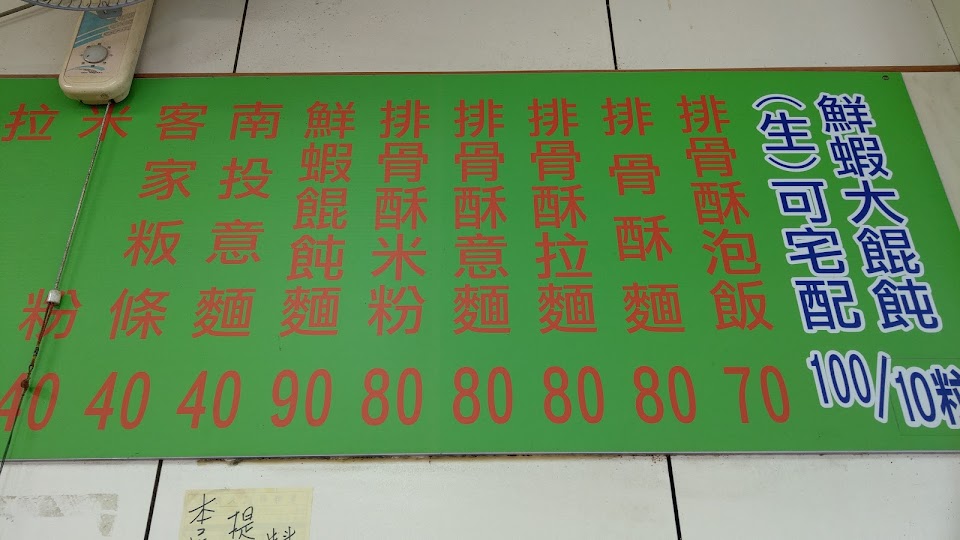 鮮蝦大餛飩
(生)可宅配
100/10粒
排骨酥泡飯 70
排骨酥麵 80
排骨酥拉麵 80
排骨酥意麵 80
排骨酥米粉 80
鮮蝦餛飩麵 90
南投意麵 40
客家粄條 40
米粉 40
拉
本
提